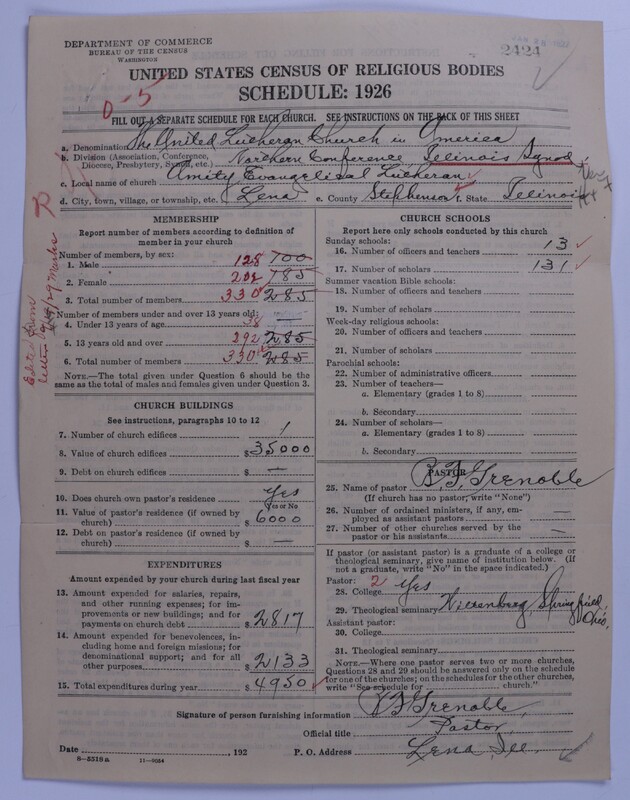 DEPARTMENT OF COMMERCE
BUREAU OF THE CENSUS
WASHINGTON
2424
UNITED STATES CENSUS OF RELIGIOUS BODIES
SCHEDULE: 1926
0-5
FILL OUT A SEPARATE SCHEDULE FOR EACH CHURCH. SEE INSTRUCTIONS ON THE BACK OF THIS SHEET
a. Denomination The United Lutheran Church in America
b. Division (Association, Conference, Diocese, Presbytery, Synod, etc.) Northern Conference, Illinois Synod
c. Local name of church Amity Evangelical Lutheran
d. City, town, village, or township, etc. Lena e. County Stephenson f. State Illinois
MEMBERSHIP
Report number of members according to definition of member in your church
Number of members, by sex:
1. Male 128 100
2. Female 202 185
3. Total number of members 330 285
Number of members under and over 13 years old:
4. Under 13 years of age 38
5. 13 years old and over 292 285
6. Total number of members 330 285
NOTE.—The total given under Question 6 should be the same as the total of males and females given under Question 3.
CHURCH BUILDINGS
See instructions, paragraphs 10 to 12
7. Number of church edifices 1
8. Value of church edifices $ 35000
9. Debt on church edifices $ —
10. Does church own pastor's residence Yes
Yes or No
11. Value of pastor's residence (if owned by church) $ 6000
12. Debt on pastor's residence (if owned by church) $ —
EXPENDITURES
Amount expended by your church during last fiscal year
13. Amount expended for salaries, repairs, and other running expenses; for improvements or new buildings; and for payments on church debt $ 2817
14. Amount expended for benevolences, including home and foreign missions; for denominational support; and for all other purposes $ 2133
15. Total expenditures during year $ 4950
CHURCH SCHOOLS
Report here only schools conducted by this church
Sunday schools:
16. Number of officers and teachers 13
17. Number of scholars 131
Summer vacation Bible schools:
18. Number of officers and teachers
19. Number of scholars
Week-day religious schools:
20. Number of officers and teachers
21. Number of scholars
Parochial schools:
22. Number of administrative officers
23. Number of teachers—
a. Elementary (grades 1 to 8)
b. Secondary
24. Number of scholars—
a. Elementary (grades 1 to 8)
b. Secondary
PASTOR
25. Name of pastor B. F. Grenoble
(If church has no pastor, write "None")
26. Number of ordained ministers, if any, employed as assistant pastors —
27. Number of other churches served by the pastor or his assistants —
If pastor (or assistant pastor) is a graduate of a college or theological seminary, give name of institution below. (If not a graduate, write "No" in the space indicated.)
Pastor: 2
28. College Yes
29. Theological seminary Wittenberg Springfield, Ohio.
Assistant pastor:
30. College
31. Theological seminary
NOTE.—Where one pastor serves two or more churches, Questions 28 and 29 should be answered only on the schedule for one of the churches; on the schedules for the other churches, write "See schedule for church."
Signature of person furnishing information B F Grenoble,
Official title Pastor,
Date , 192 P. O. Address Lena, Ill.
8-5518a 11-9054